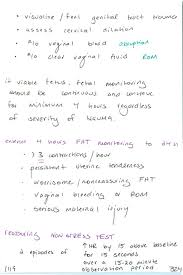 • visualize / feel genital tract trauma
• assess cervical dilation
• r/o vaginal blood abruption
• r/o clear vaginal fluid ROM
if viable fetus, fetal monitoring
should be continuous and continue
for minimum 4 hours regardless
of severity of trauma
extend 4 hours FHT monitoring to 24 if
• > 3 contractions / hour
• persistent uterine tenderness
• worrisome / nonreassuring FHT
• vaginal bleeding or ROM
• serious maternal injury
reassuring NON STRESS TEST
2 episodes of ↑ HR by 15 above baseline
for 15 seconds
over a 15-20 minute
observation period